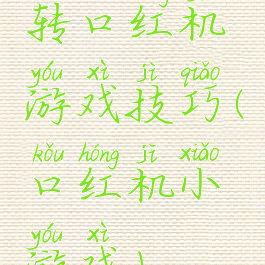 转口红机
yóu xì jì qiǎo
游戏技巧(
kǒu hóng jī xiǎo
口红机小
yóu xì
游戏)